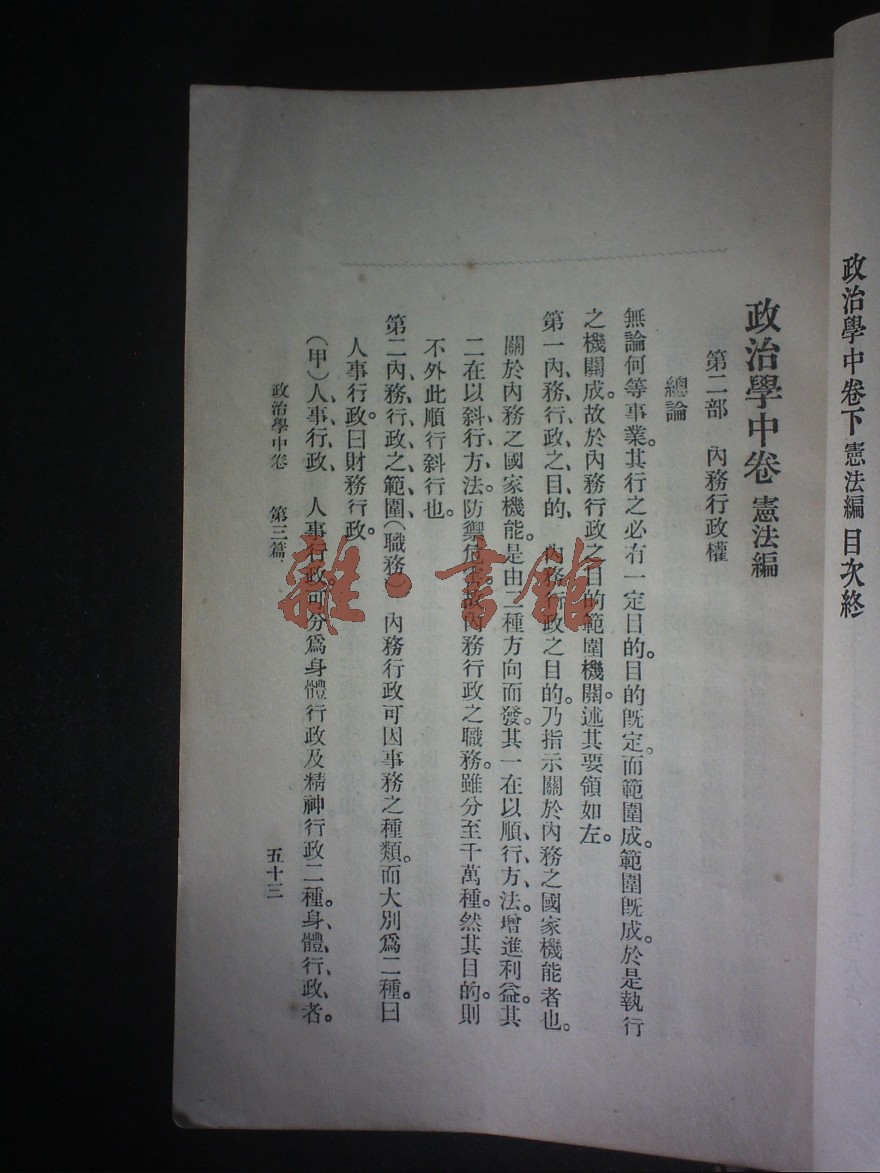 政治學中卷下 憲法編 目次終
政治學中卷 憲法編
第二部 內務行政權
總論
無論何等事業。其行之必有一定目的。目的旣定。而範圍成。範圍旣成。於是執行
之機關成。故於內務行政之目的範圍機關。述其要領如左。
第一、內、務、行、政、之、目、的、 內務行政之目的。乃指示關於內務之國家機能者也。
關於內務之國家機能。是由二種方向而發。其一在以順、行、方、法。增進利益。其
二在以斜、行、方、法。防禦危害。故內務行政之職務。雖分至千萬種。然其目的。則
不外此順行斜行也。
第二、內、務、行、政、之、範、圍、(職務) 內務行政可因事務之種類。而大別爲二種。曰
人事行政。曰財務行政。
(甲)人、事、行、政、 人事行政。可分爲身體行政及精神行政二種。身、體、行、政、者。
政治學中卷 第三篇 五十三
雜·書館